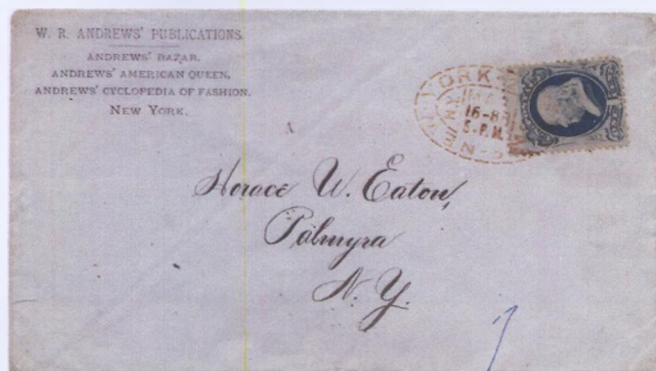 W. R. ANDREWS' PUBLICATIONS.
ANDREWS' BAZAR.
ANDREWS' AMERICAN QUEEN,
ANDREWS' CYCLOPEDIA OF FASHION.
NEW YORK.
NEW YORK
N.Y.
5-P.M.
Horace W. Eaton,
Palmyra
N. Y.